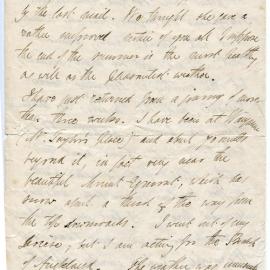 by the last mail. We thought she gave a
rather improved account of you all I suppose
the end of the summer is the most healthy
as well as the pleasantest weather.
I have just returned from a journey of more
than three weeks. I have been at
(Mr. Taylor's place) and about 40 miles
beyond it, in fact very near the
beautiful Mount Egmont, which has
snow about a third of the way from
the top downwards. I went out of my
Diocese, but I am acting for the Bishop
of Auckland. The weather was